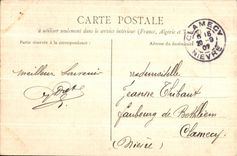 CARTE POSTALE
à utiliser seulement dans le service intérieur (France, Algérie et
Partie réservée à la correspondance
CLAMECY
NIÈVRE
Meilleur Souvenir
Mademoiselle
Jeanne Thibault
faubourg de Bethléem
Clamecy
(Nièvre)